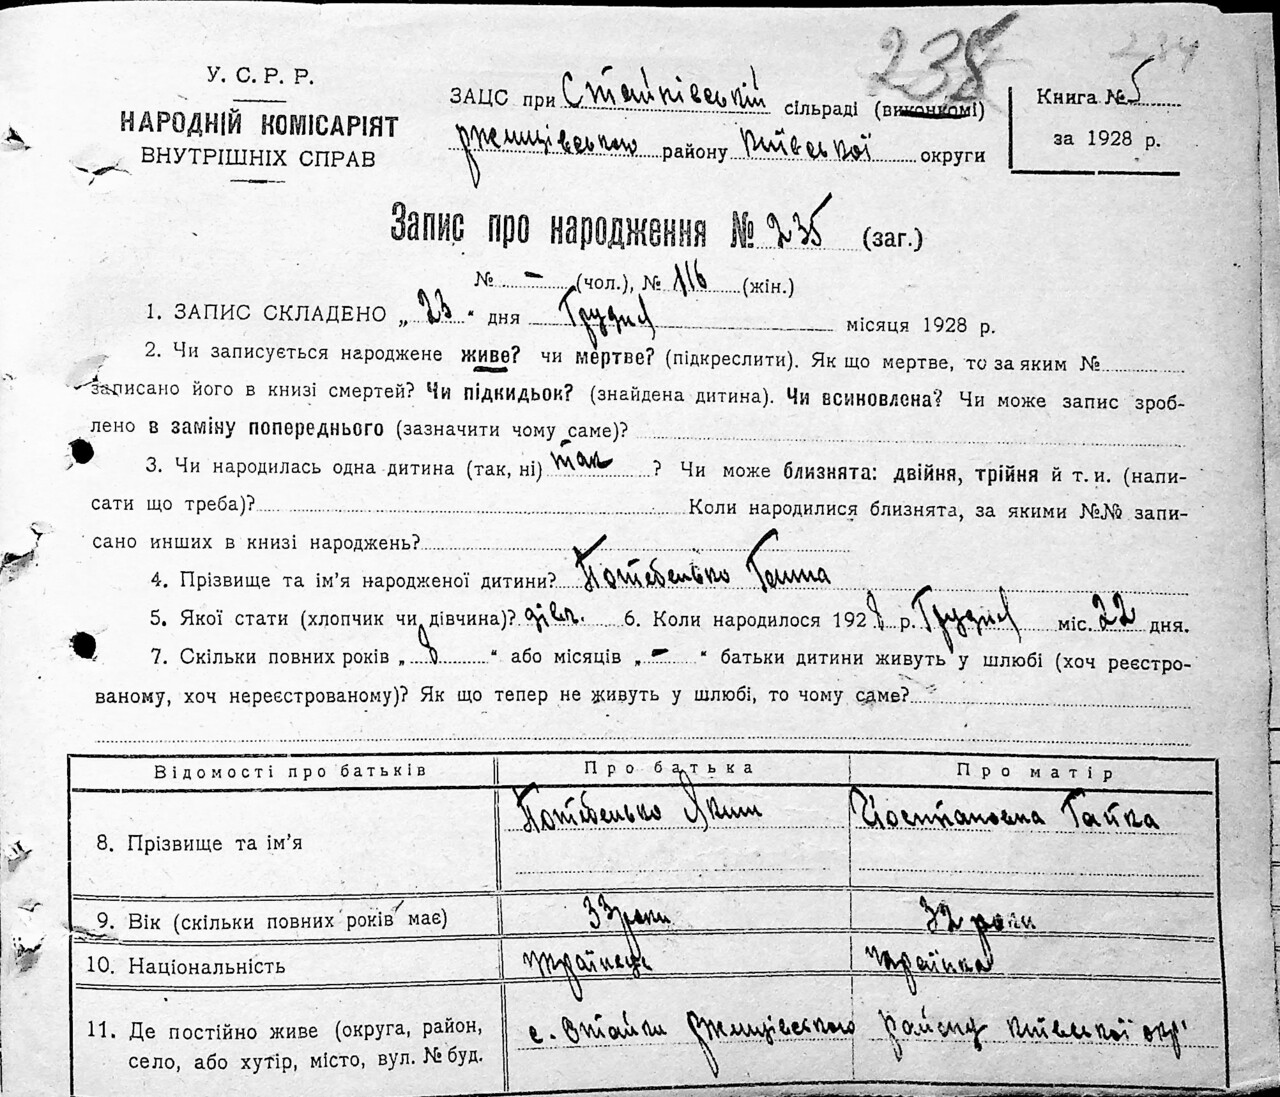 235 234
У. С. Р. Р.
НАРОДНІЙ КОМІСАРІЯТ
ВНУТРІШНІХ СПРАВ
ЗАЦС при Стайківській сільраді (виконкомі)
Ржищівського району Київської округи
Книга № 5
за 1928 р.
Запис про народження № 235 (заг.)
№ - (чол.), № 116 (жін.)
1. ЗАПИС СКЛАДЕНО „ 23 “ дня Грудня місяця 1928 р.
2. Чи записується народжене живе? чи мертве? (підкреслити). Як що мертве, то за яким №
записано його в книзі смертей? Чи підкидьок? (знайдена дитина). Чи всиновлена? Чи може запис зроб-
лено в заміну попереднього (зазначити чому саме)?
3. Чи народилась одна дитина (так, ні) так ? Чи може близнята: двійня, трійня й т. и. (напи-
сати що треба)? Коли народилися близнята, за якими №№ запи-
сано инших в книзі народжень?
4. Прізвище та ім’я народженої дитини? Потебенько Ганна
5. Якої стати (хлопчик чи дівчина)? дівч. 6. Коли народилося 1928 р. Грудня міс. 22 дня.
7. Скільки повних років „ 8 “ або місяців „ - “ батьки дитини живуть у шлюбі (хоч реєстро-
ваному, хоч нереєстрованому)? Як що тепер не живуть у шлюбі, то чому саме?
Відомості про батьків Про батька Про матір
8. Прізвище та ім’я Потебенько Яким Гапка
9. Вік (скільки повних років має) 33 роки 32 роки
10. Національність Українець Українка
11. Де постійно живе (округа, район, с. Стайки Ржищівського району Київської окр.
село, або хутір, місто, вул. № буд.